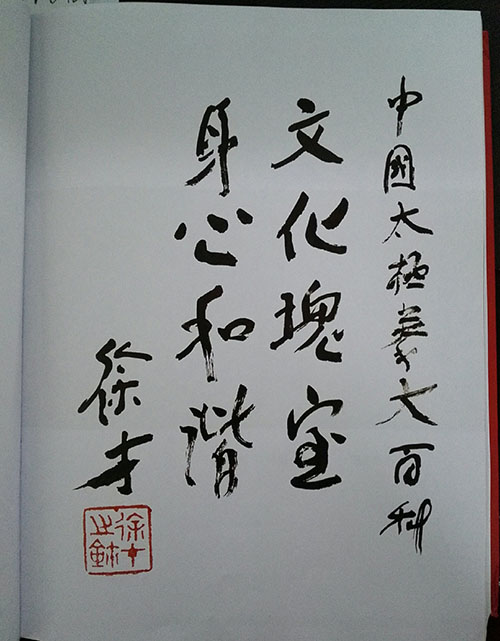 中國太極拳大百科
文化瑰宝
身心和谐
徐才
徐才之鉨